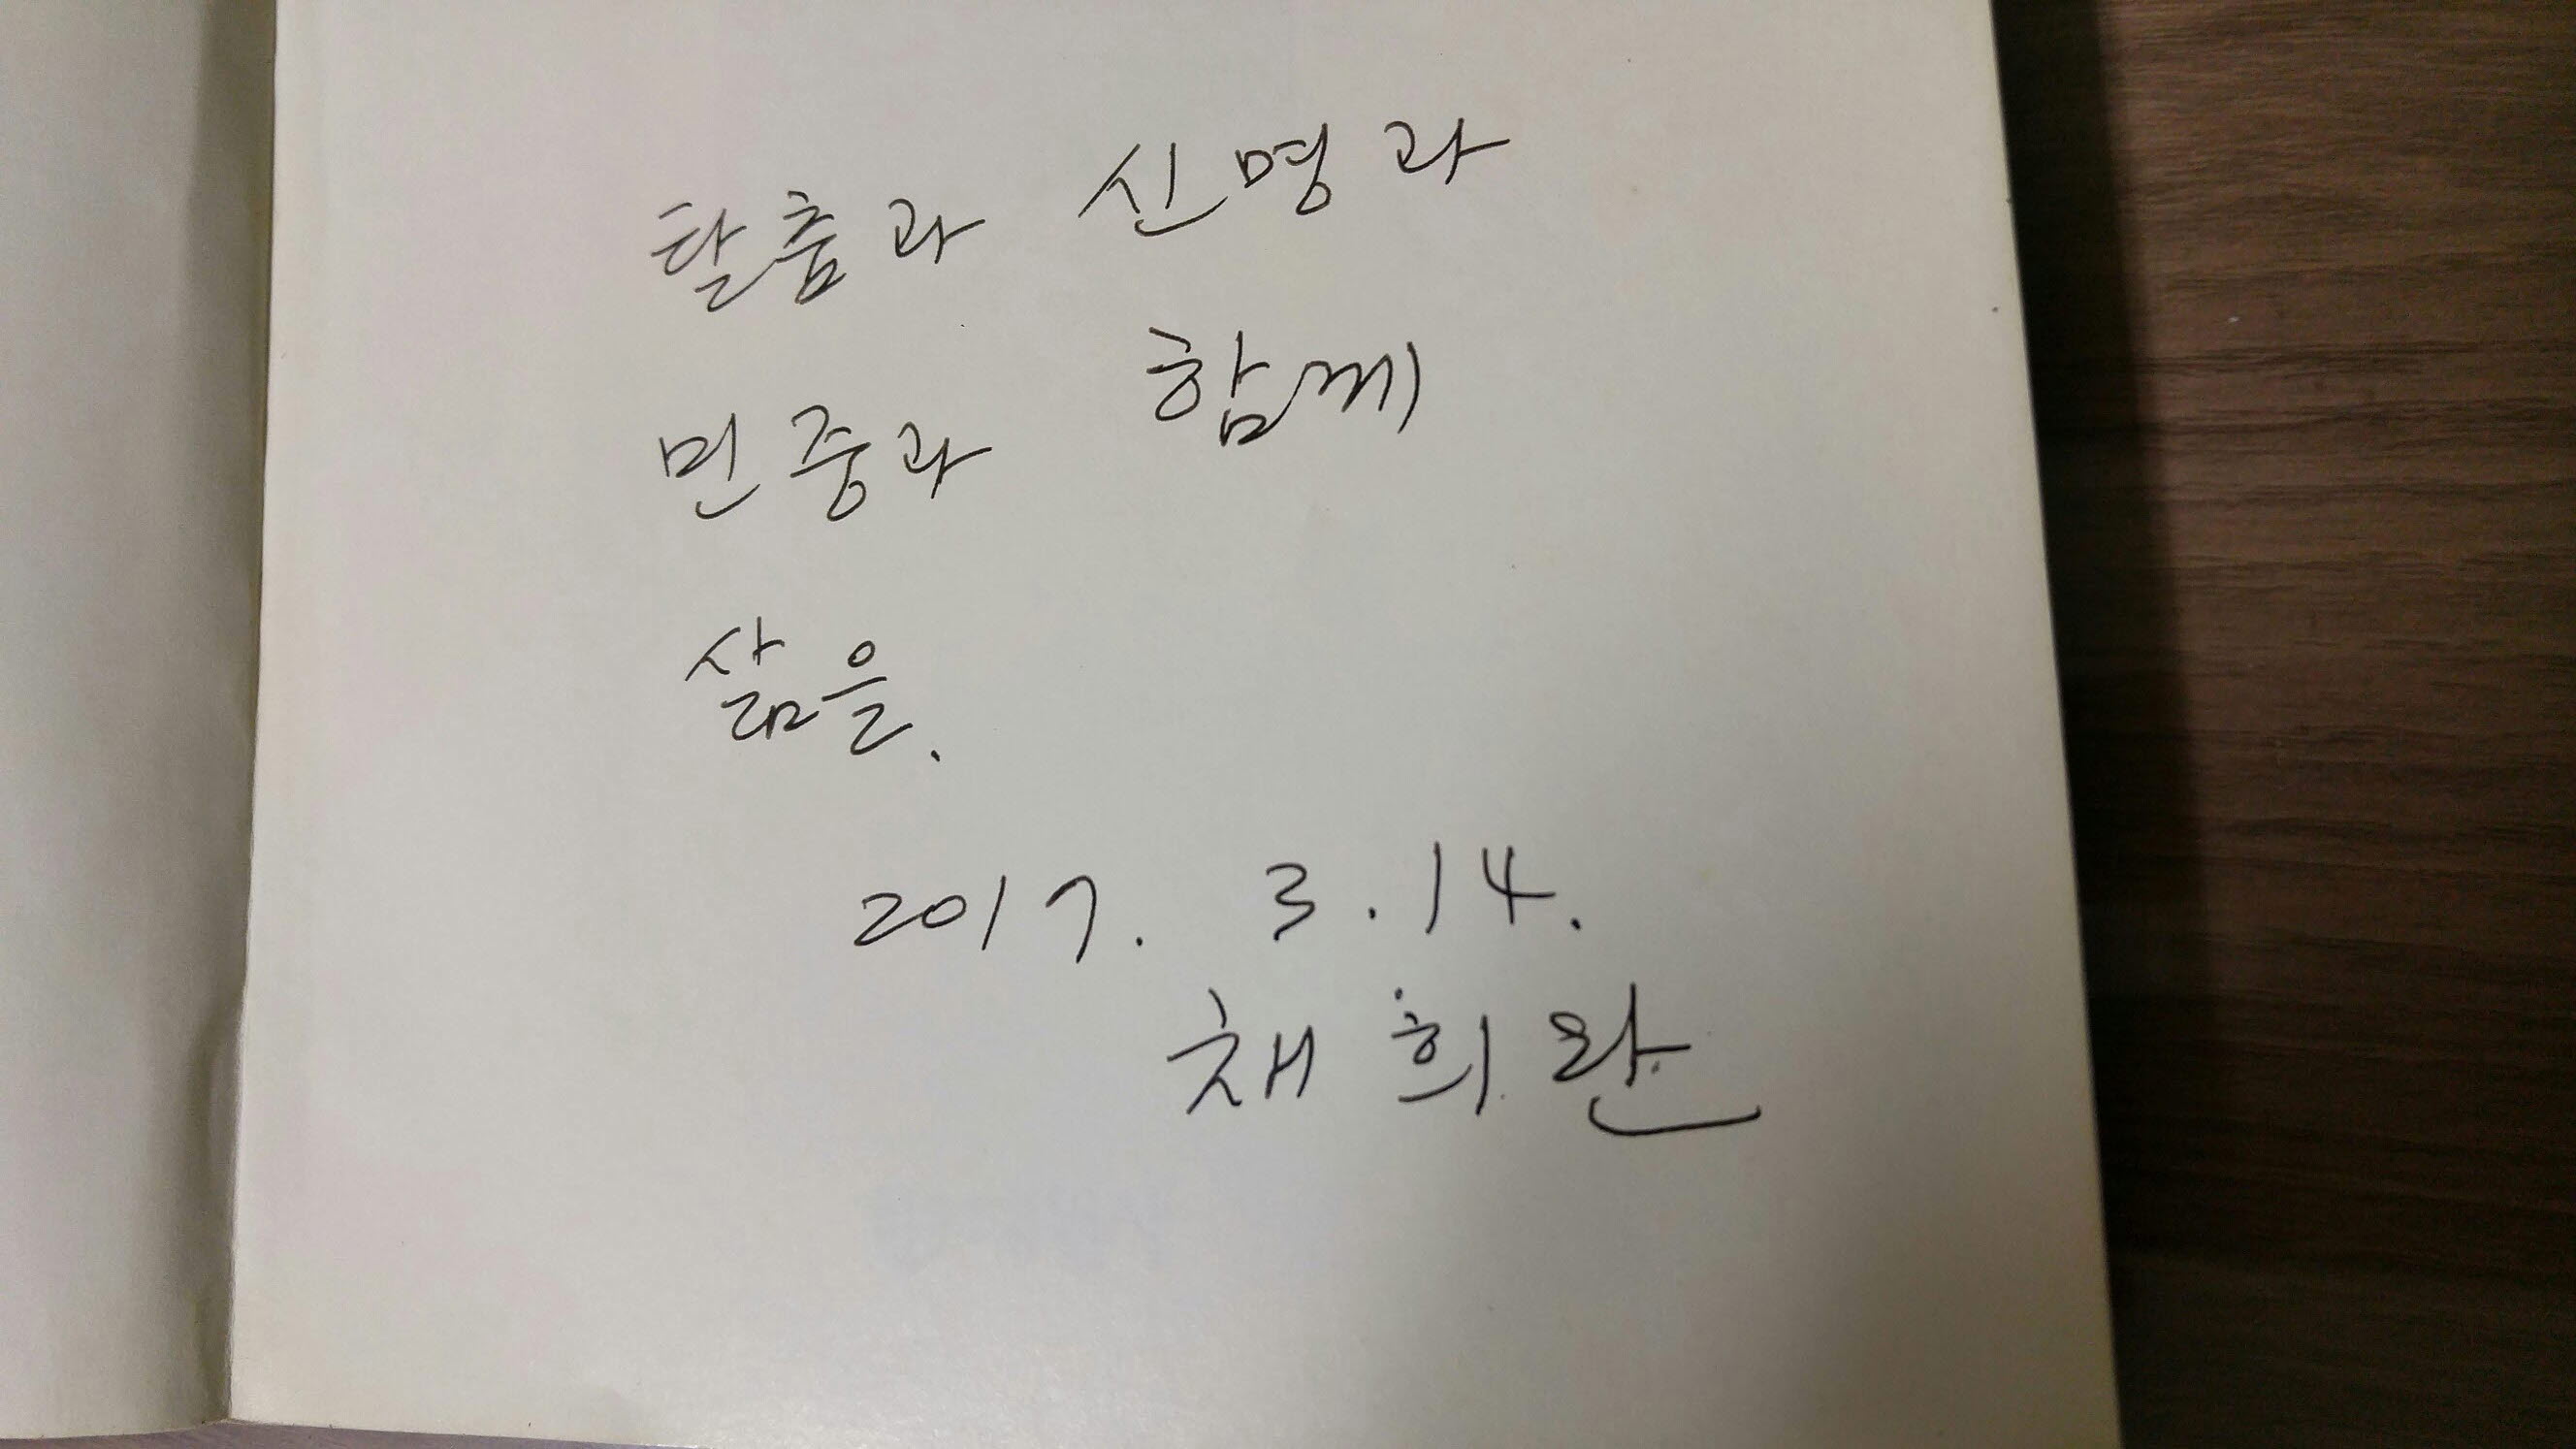 탈춤과 신명과
민중과 함께
삶을.
2017. 3. 14.
채희완